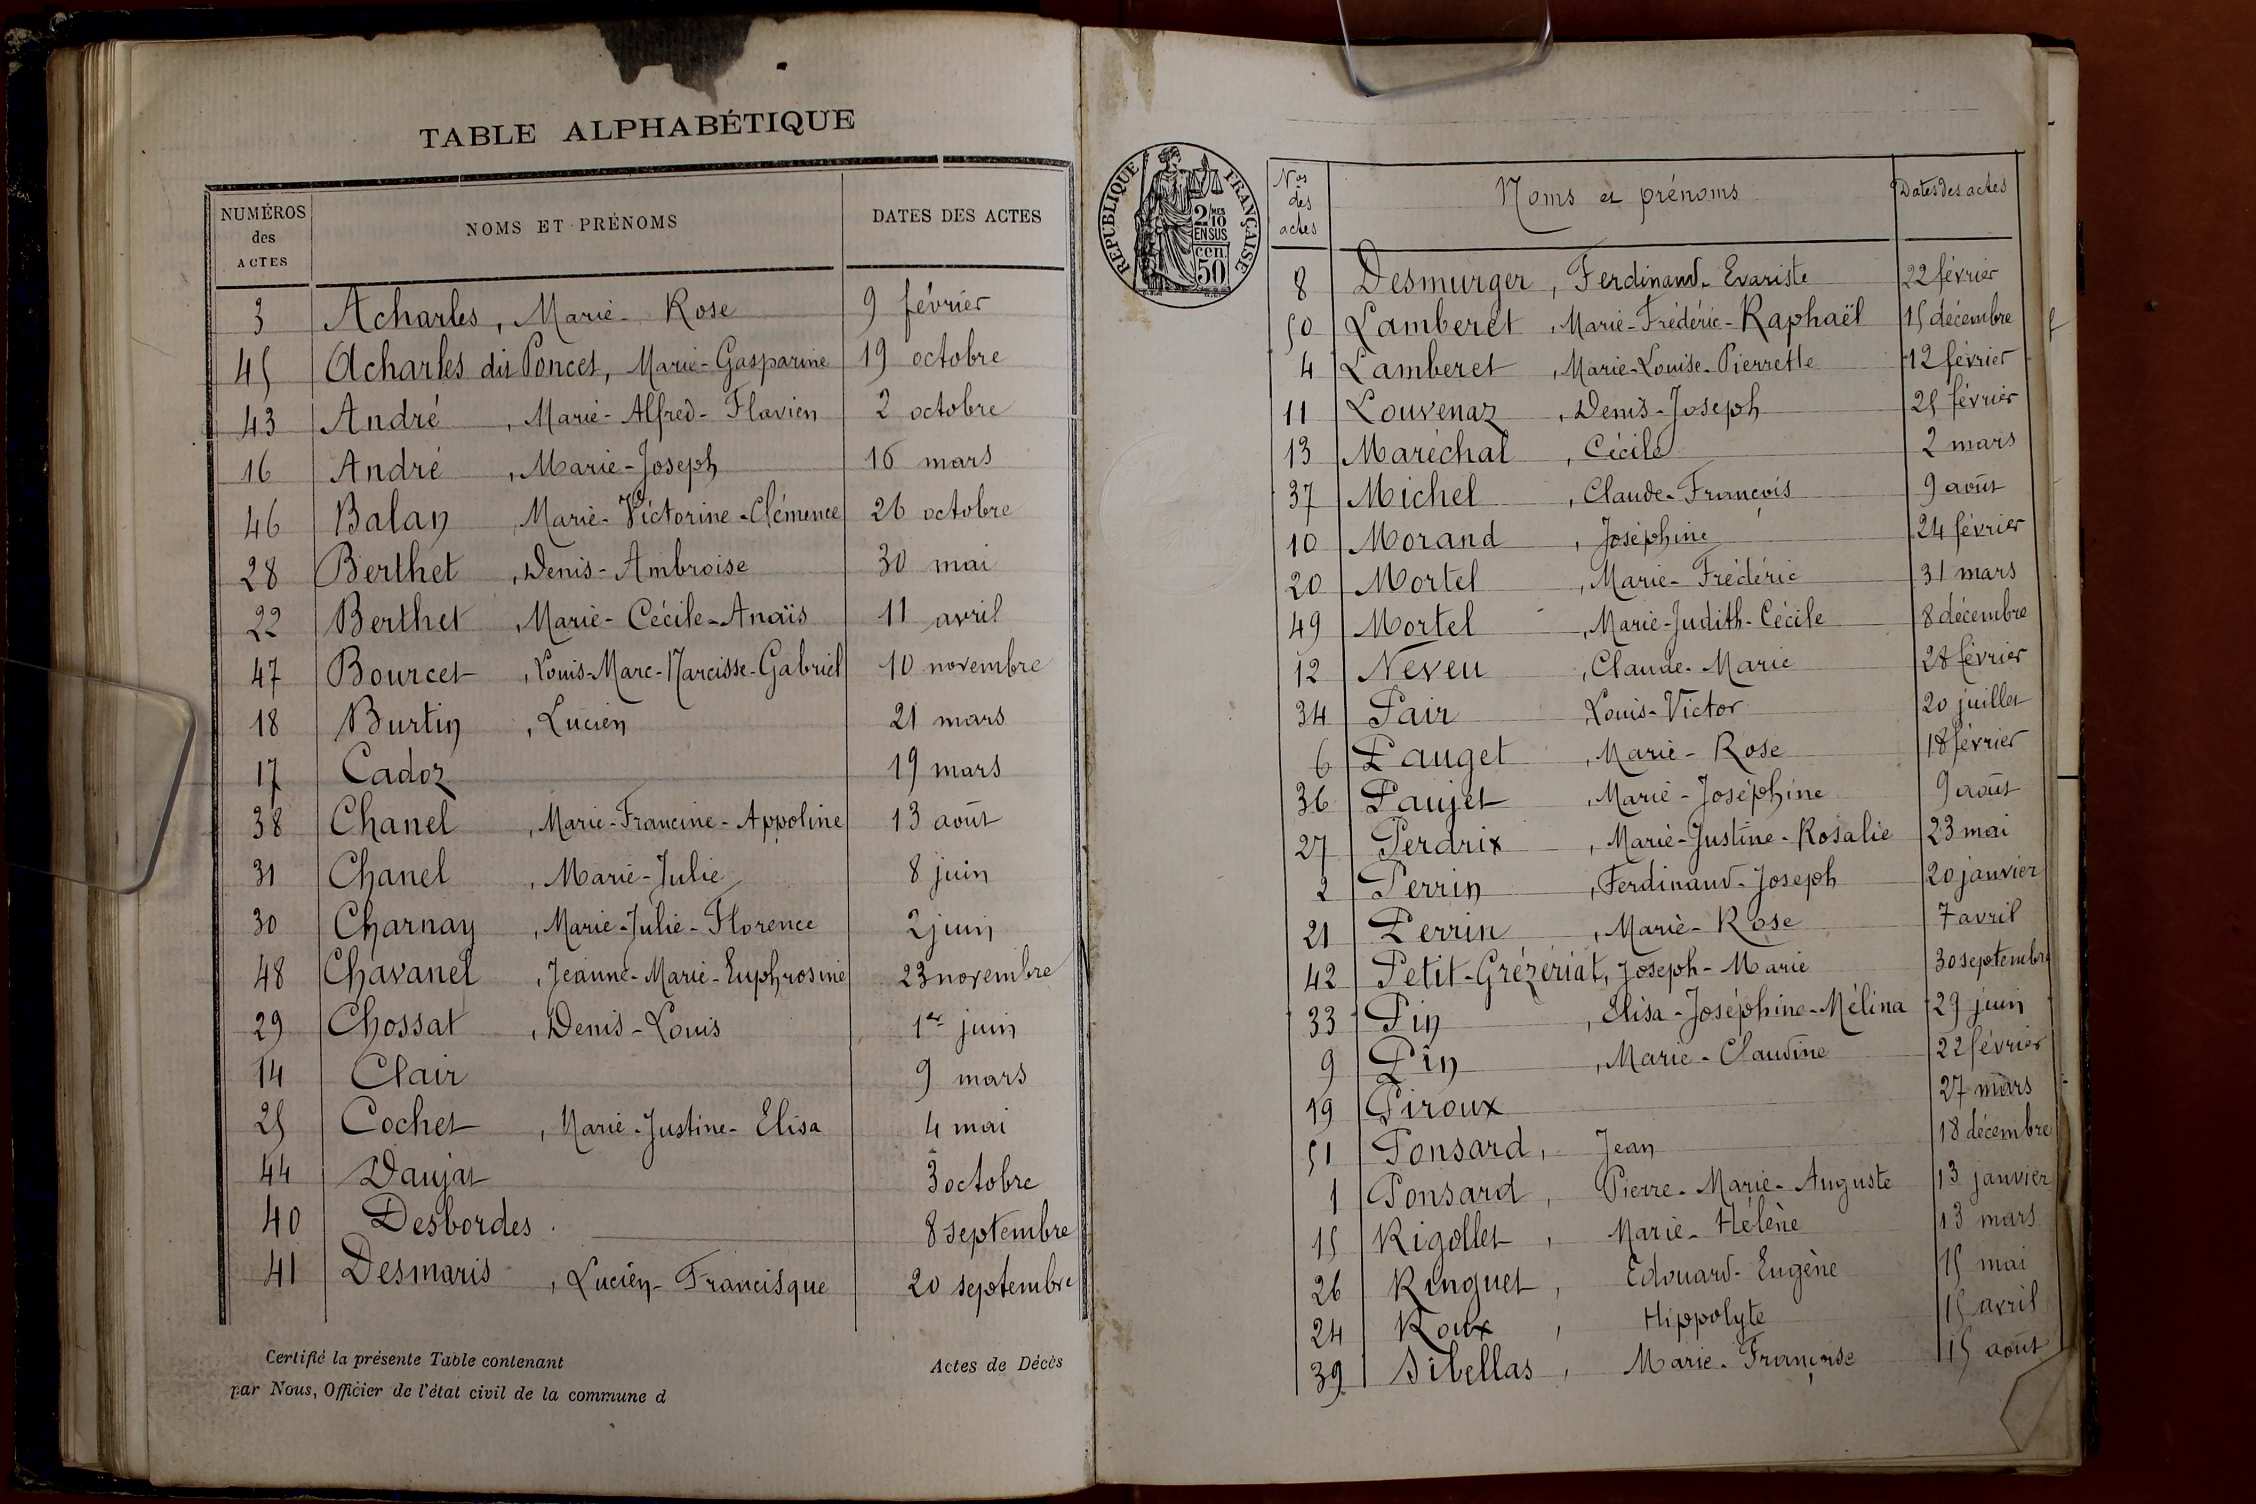 TABLE ALPHABÉTIQUE
NUMÉROS des ACTES NOMS ET PRÉNOMS DATES DES ACTES
3 Acharles, Marie-Rose 9 février
45 Acharles dit Poncet, Marie-Gasparine 19 octobre
43 André, Marie-Alfred-Flavien 2 octobre
16 André, Marie-Joseph 16 mars
46 Balan, Marie-Victorine-Clémence 26 octobre
28 Berthet, Denis-Ambroise 30 mai
22 Berthet, Marie-Cécile-Anaïs 11 avril
47 Bourcet, Louis-Marc-Narcisse-Gabriel 10 novembre
18 Burtin, Lucien 21 mars
17 Cadoz 19 mars
38 Chanel, Marie-Francine-Appoline 13 août
31 Chanel, Marie-Julie 8 juin
30 Charnay, Marie-Julie-Florence 2 juin
48 Chavanel, Jeanne-Marie-Euphrosine 23 novembre
29 Chossat, Denis-Louis 1er juin
14 Clair 9 mars
25 Cochet, Marie-Justine-Elisa 4 mai
44 Daujat 3 octobre
40 Desbordes. 8 septembre
41 Desmaris, Lucien-Francisque 20 septembre
Certifié la présente Table contenant Actes de Décès
par Nous, Officier de l'état civil de la commune d
RÉPUBLIQUE FRANÇAISE
2/10MES
EN SUS
cen.
50
Nos des actes Noms et prénoms Dates des actes
8 Desmurger, Ferdinand-Evariste 22 février
50 Lamberet, Marie-Frédéric-Raphaël 15 décembre
4 Lamberet, Marie-Louise-Pierrette 12 février
11 Louvenaz, Denis-Joseph 25 février
13 Maréchal, Cécile 2 mars
37 Michel, Claude-François 9 août
10 Morand, Joséphine 24 février
20 Mortel, Marie-Frédéric 31 mars
49 Mortel, Marie-Judith-Cécile 8 décembre
12 Neveu, Claude-Marie 28 février
34 Pair Louis-Victor 20 juillet
6 Pauget, Marie-Rose 18 février
36 Paujet, Marie-Joséphine 9 août
27 Perdrix, Marie-Justine-Rosalie 23 mai
2 Perrin, Ferdinand-Joseph 20 janvier
21 Perrin, Marie-Rose 7 avril
42 Petit-Grézériat, Joseph-Marie 30 septembre
33 Pin, Elisa-Joséphine-Mélina 29 juin
9 Pin, Marie-Claudine 22 février
19 Piroux 27 mars
51 Ponsard, Jean 18 décembre
1 Ponsard, Pierre-Marie-Auguste 13 janvier
15 Rigollet, Marie-Hélène 13 mars
26 Ringuet, Edouard-Eugène 15 mai
24 Roux, Hippolyte 15 avril
39 Sibellas, Marie-Françoise 15 août